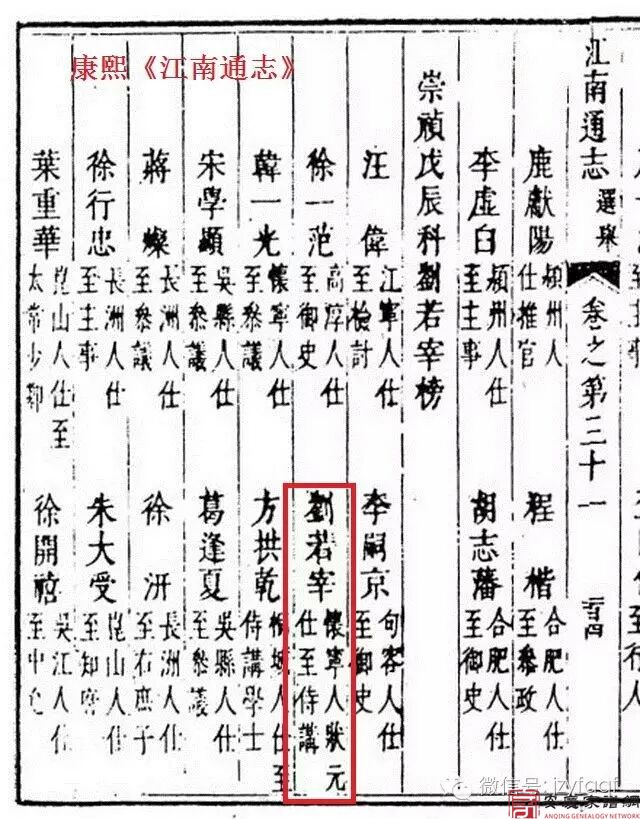 康熙《江南通志》
江南通志
選舉
卷之第三十一
鹿獻陽
潁州人
仕推官
程楷
合肥人仕
至參政
李虛白
潁州人仕
至主事
胡志藩
合肥人仕
至御史
崇禎戊辰科劉若宰榜
汪偉
江寧人仕
至檢討
李嗣京
句容人仕
至御史
徐一范
高淳人仕
至御史
劉若宰
懷寧人狀元
仕至侍講
韓一光
懷寧人仕
至參議
方拱乾
桐城人仕至
侍講學士
宋學顯
吳縣人仕
至參議
葛逢夏
吳縣人仕
至參議
蔣燦
長洲人仕
至參議
徐汧
長洲人仕
至右庶子
徐行忠
長洲人仕
至主事
朱大受
崑山人仕
至知府
葉重華
崑山人仕至
太常少卿
徐開禧
吳江人仕
至中允
微信号: jzyfaqf
安慶家譜網
ANQING GENEALOGY NETWORK